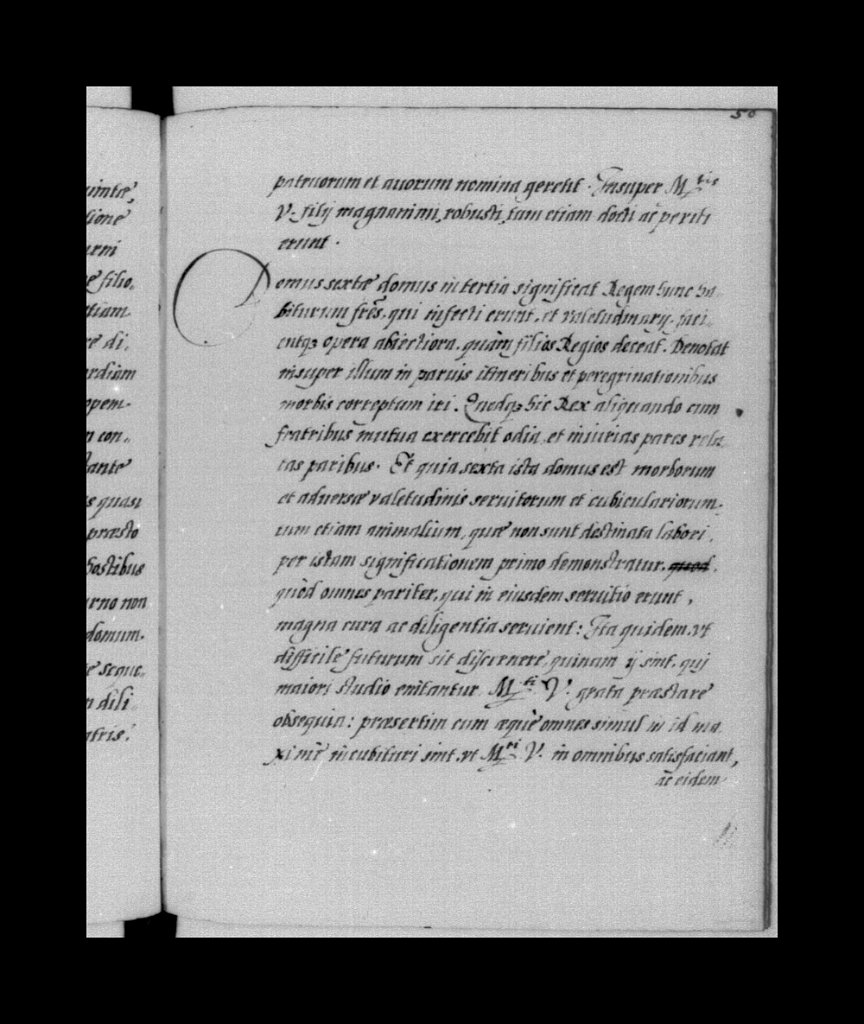 50
uintæ,
tione
urni
filio,
etiam
re di,
ordium
opem,
n con,
tante
s quasi
præsto
hostibus
urno non
domum.
e seque,
n dili
atris.
patruorum et auorum nomina gerent. Insuper M.tis
V. filij magnanimi, robusti, tum etiam docti ac periti
erunt.
Domus sextæ domus in tertia significat Regem hunc ha,
biturum frēs, qui infecti erunt, et valetudinarij, faci,
entq; opera abiectiora, quàm filios Regios deceat. Denotat
insuper illum in paruis itineribus et peregrinationibus
morbis correptum iri. Quodq; hic Rex aliquando cum
fratribus mutua exercebit odia, et iniurias pares rela,
tas paribus. Et quia sexta ista domus est morborum
et aduersæ valetudinis seruitorum et cubiculariorum,
tum etiam animalium, quæ non sunt destinata labori,
per istam significationem primo demonstratur, quod
quòd omnes pariter, qui in eiusdem seruitio erunt,
magna cura ac diligentia seruient: Ita quidem, vt
difficile futurum sit discernere, quinam ij sint, qui
maiori studio enitantur M.ti V. grata præstare
obsequia: præsertim cum æque omnes simul in id ma
ximè incubituri sint, vt M.ti V. in omnibus satisfaciant,
ac eidem